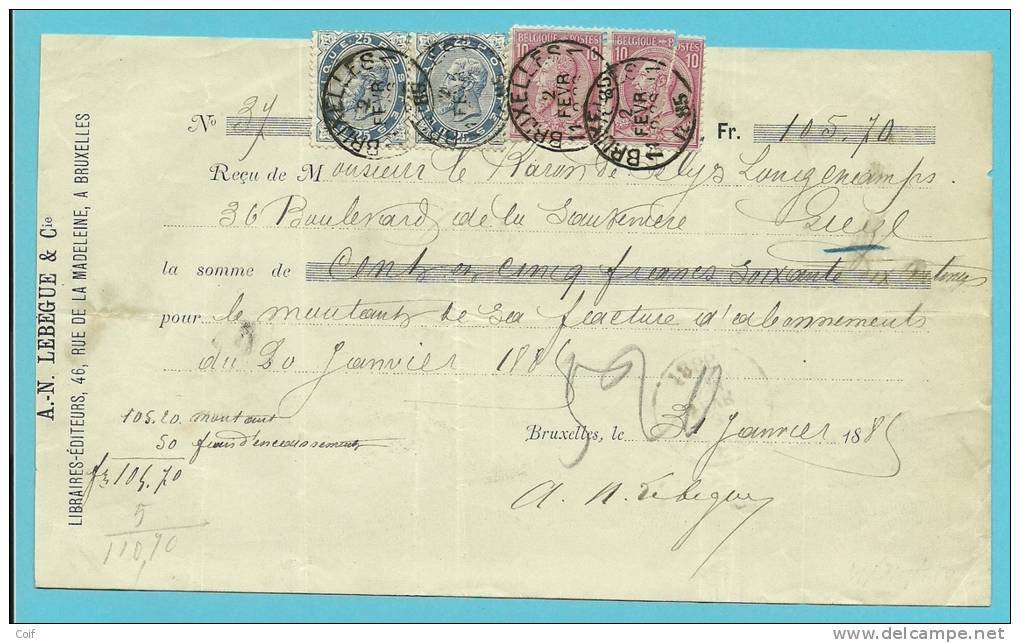 A.-N. LEBÈGUE & Cie
LIBRAIRES-ÉDITEURS, 46, RUE DE LA MADELEINE, A BRUXELLES
25 25
BELGIQUE POSTES
10 10 10 10
BRUXELLES 1
2
FEVR
No 37 Fr. 105.70
Reçu de Monsieur le Baron de Selys Longchamps
36 Boulevard de la Sauvenière Liège
la somme de Cent cinq francs soixante dix
pour le montant de sa facture d'abonnements
du 20 Janvier 1885
105.20 montant
50 frais d'encaissement
fr 105.70
5
110,70
Bruxelles, le 31 Janvier 1885
A. N. Lebègue
Coif
www.delcampe.net